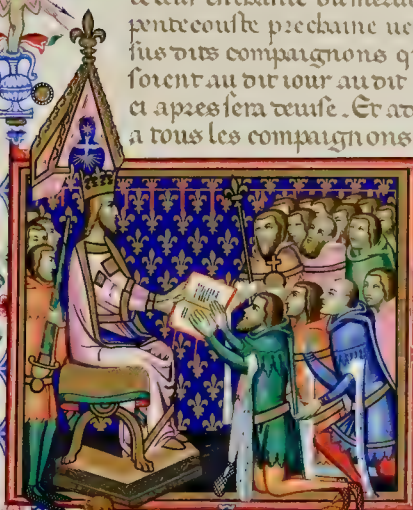 pentecouste prechaine ue
sus dits compaignons q
soient au dit iour au dit
ci apres sera deuise. Et a
a tous les compaignons